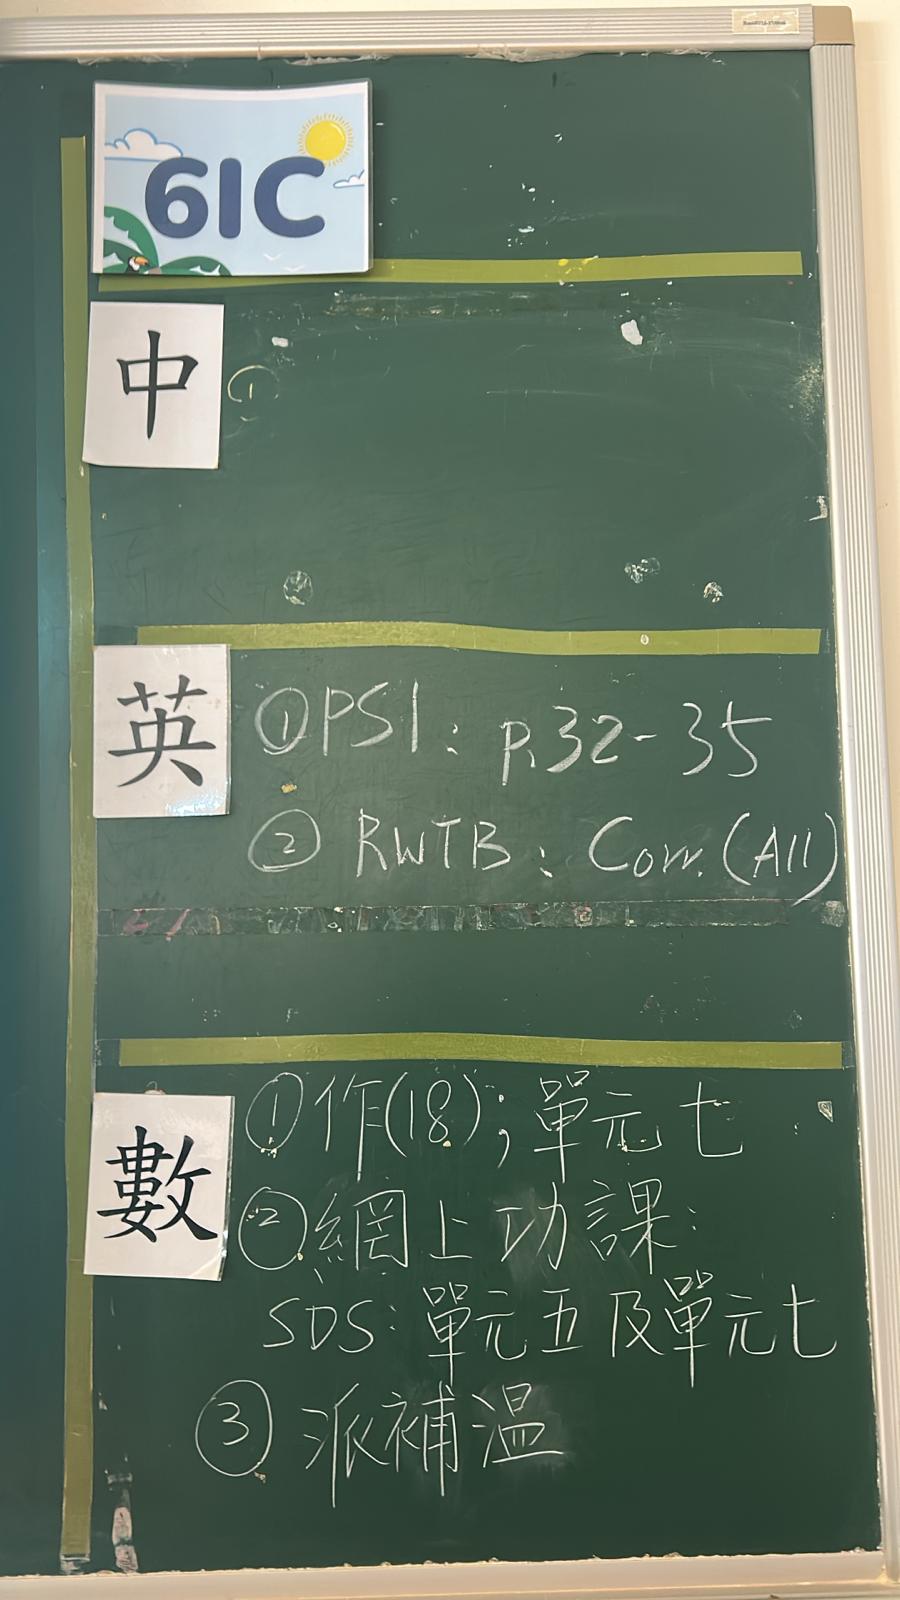 6IC
中
①
英
①PS1: P.32-35
② RWTB: Corr.(All)
數
①作(18);單元七
②網上功課:
SDS:單元五及單元七
③派補溫